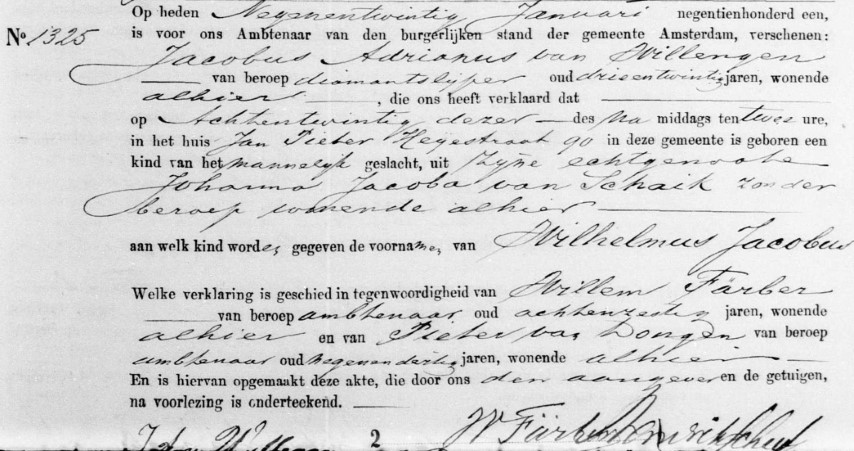 Op heden Negenentwintig Januari negentienhonderd een,
No 1325 is voor ons Ambtenaar van den burgerlijken stand der gemeente Amsterdam, verschenen:
Jacobus Adrianus van Willengen
van beroep diamantslijper oud drieentwintig jaren, wonende
alhier, die ons heeft verklaard dat
op Achtentwintig dezer des Na middags ten twee ure,
in het huis Jan Pieter Heyestraat 90 in deze gemeente is geboren een
kind van het mannelijk geslacht, uit zijne echtgenoote
Johanna Jacoba van Schaik zonder
beroep wonende alhier
aan welk kind worden gegeven de voornamen van Wilhelmus Jacobus
Welke verklaring is geschied in tegenwoordigheid van Willem Färber
van beroep ambtenaar oud achtenzestig jaren, wonende
alhier en van Pieter van Dongen van beroep
ambtenaar oud negenendertig jaren, wonende alhier
En is hiervan opgemaakt deze akte, die door ons den aangever en de getuigen,
na voorlezing is onderteekend.
2 W Färber